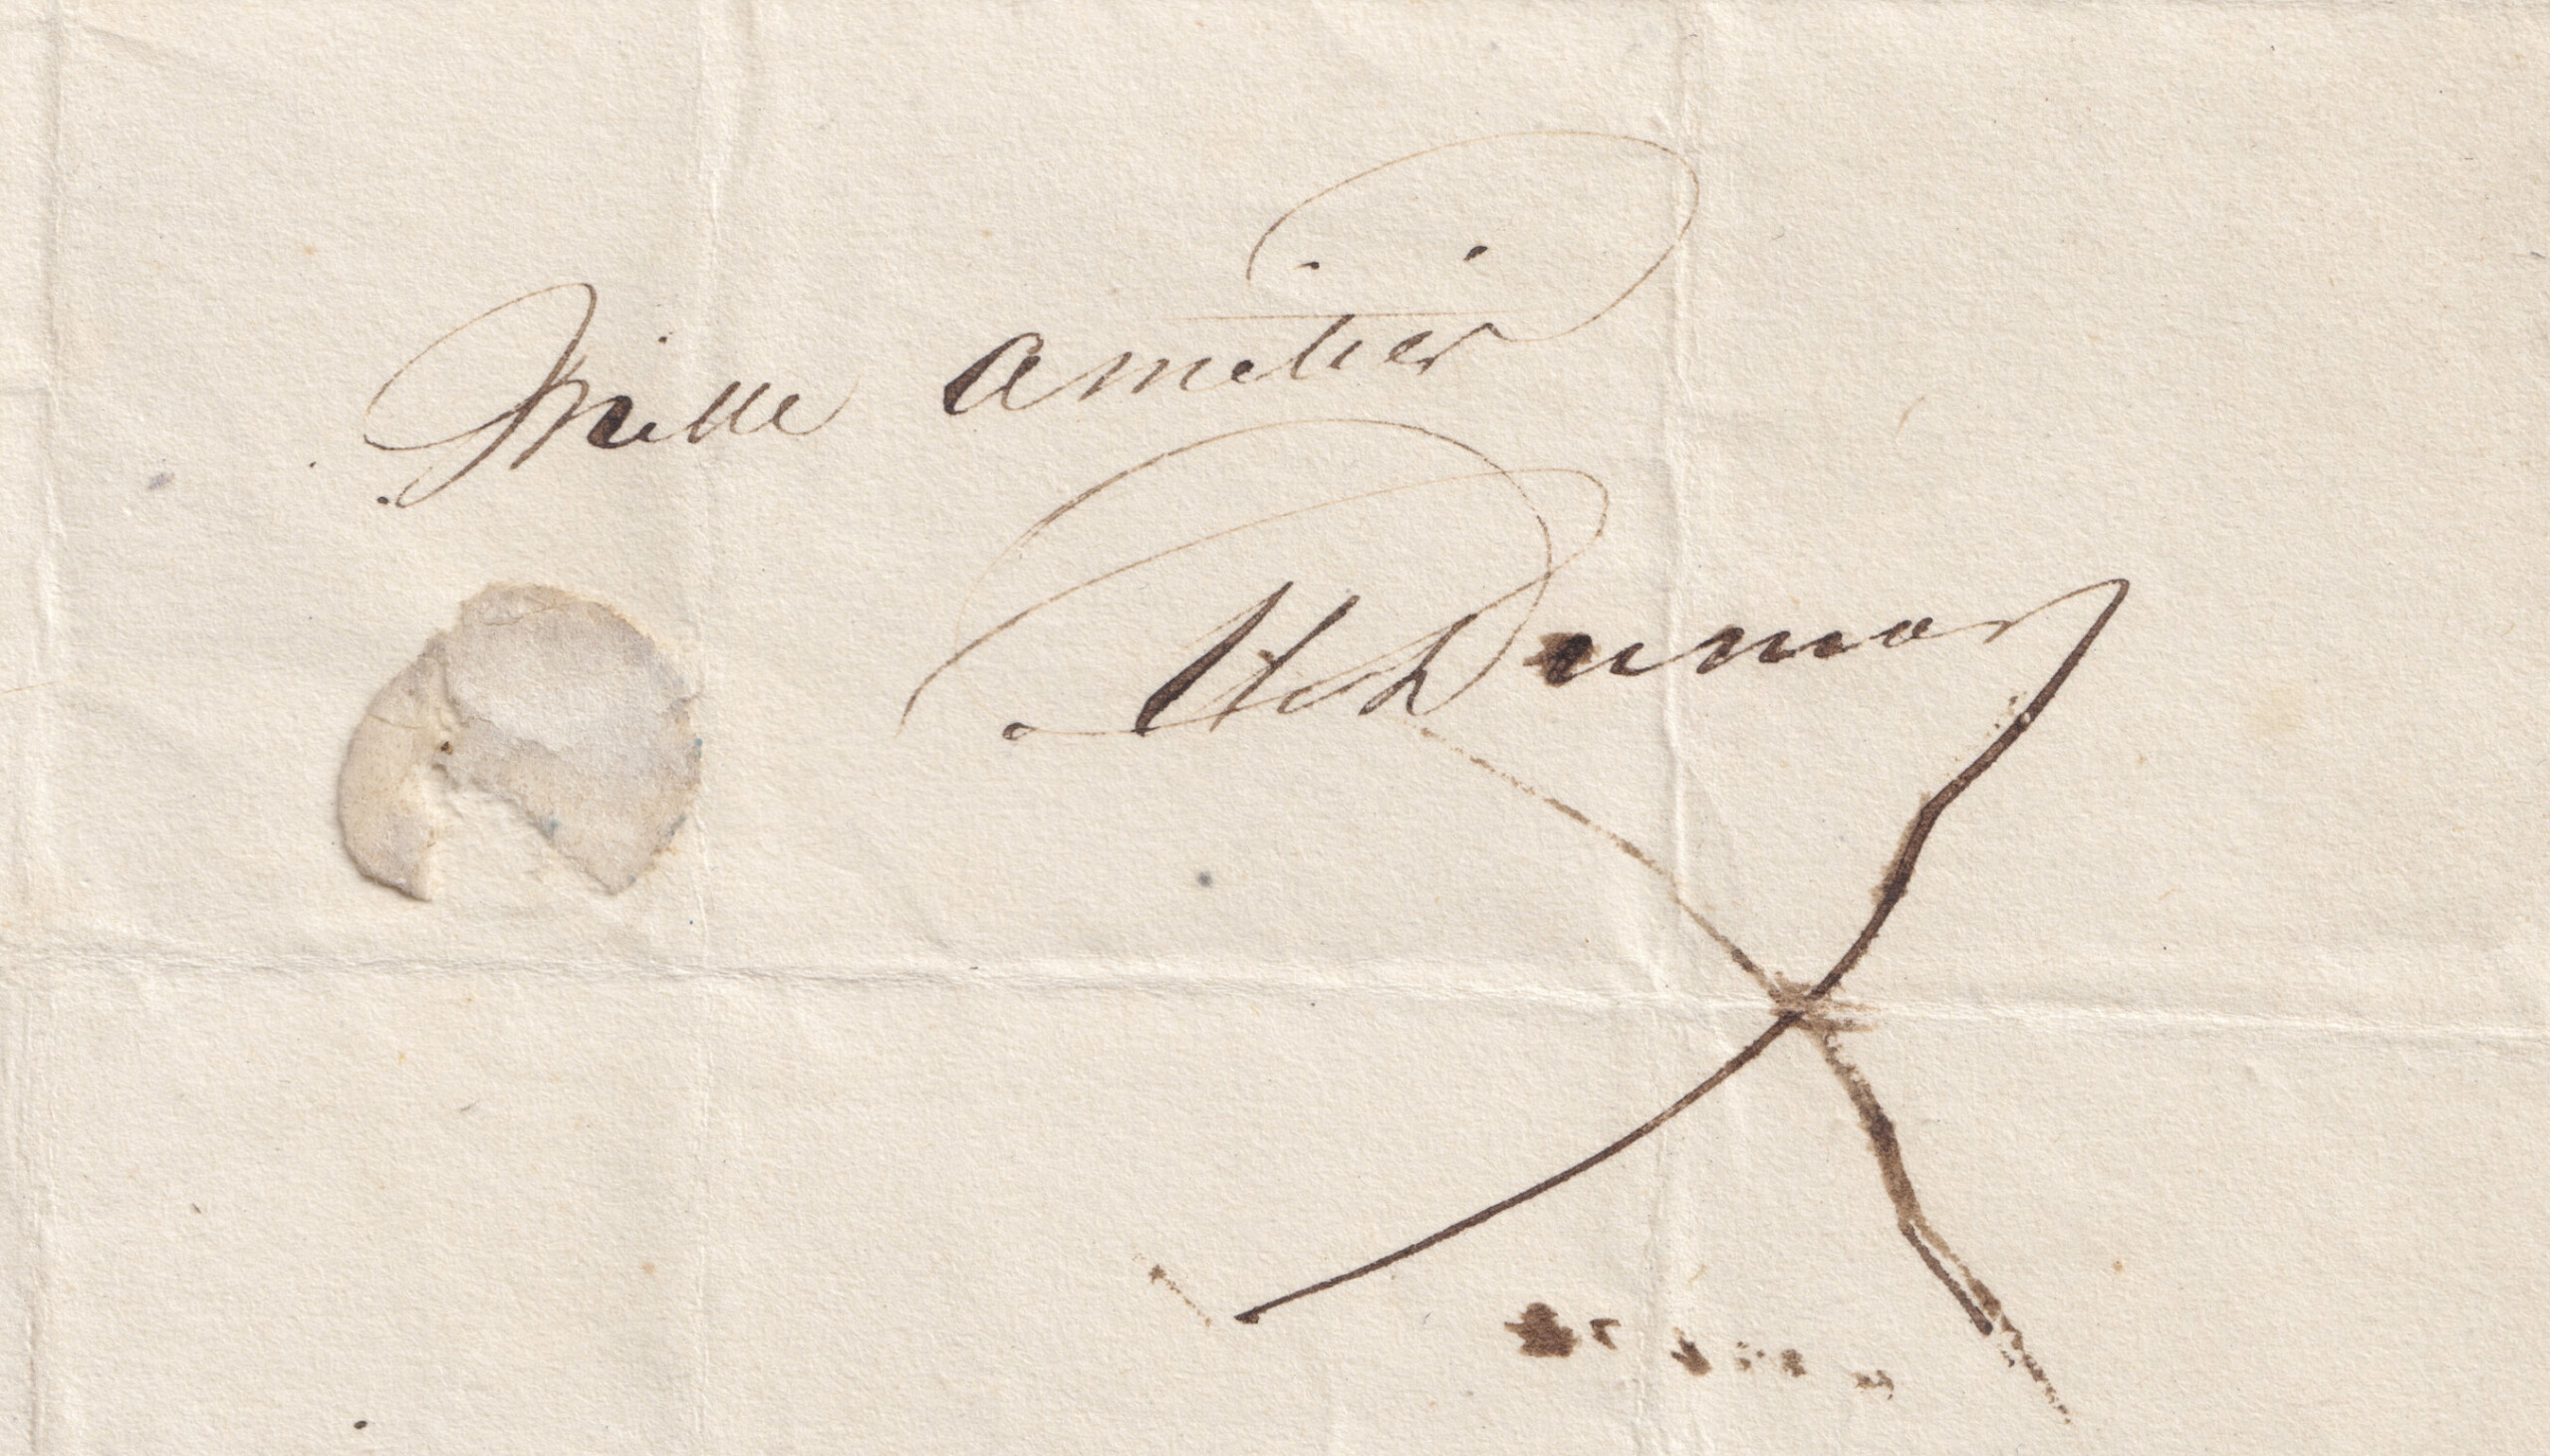 Mille amitiés
Alex Dumas